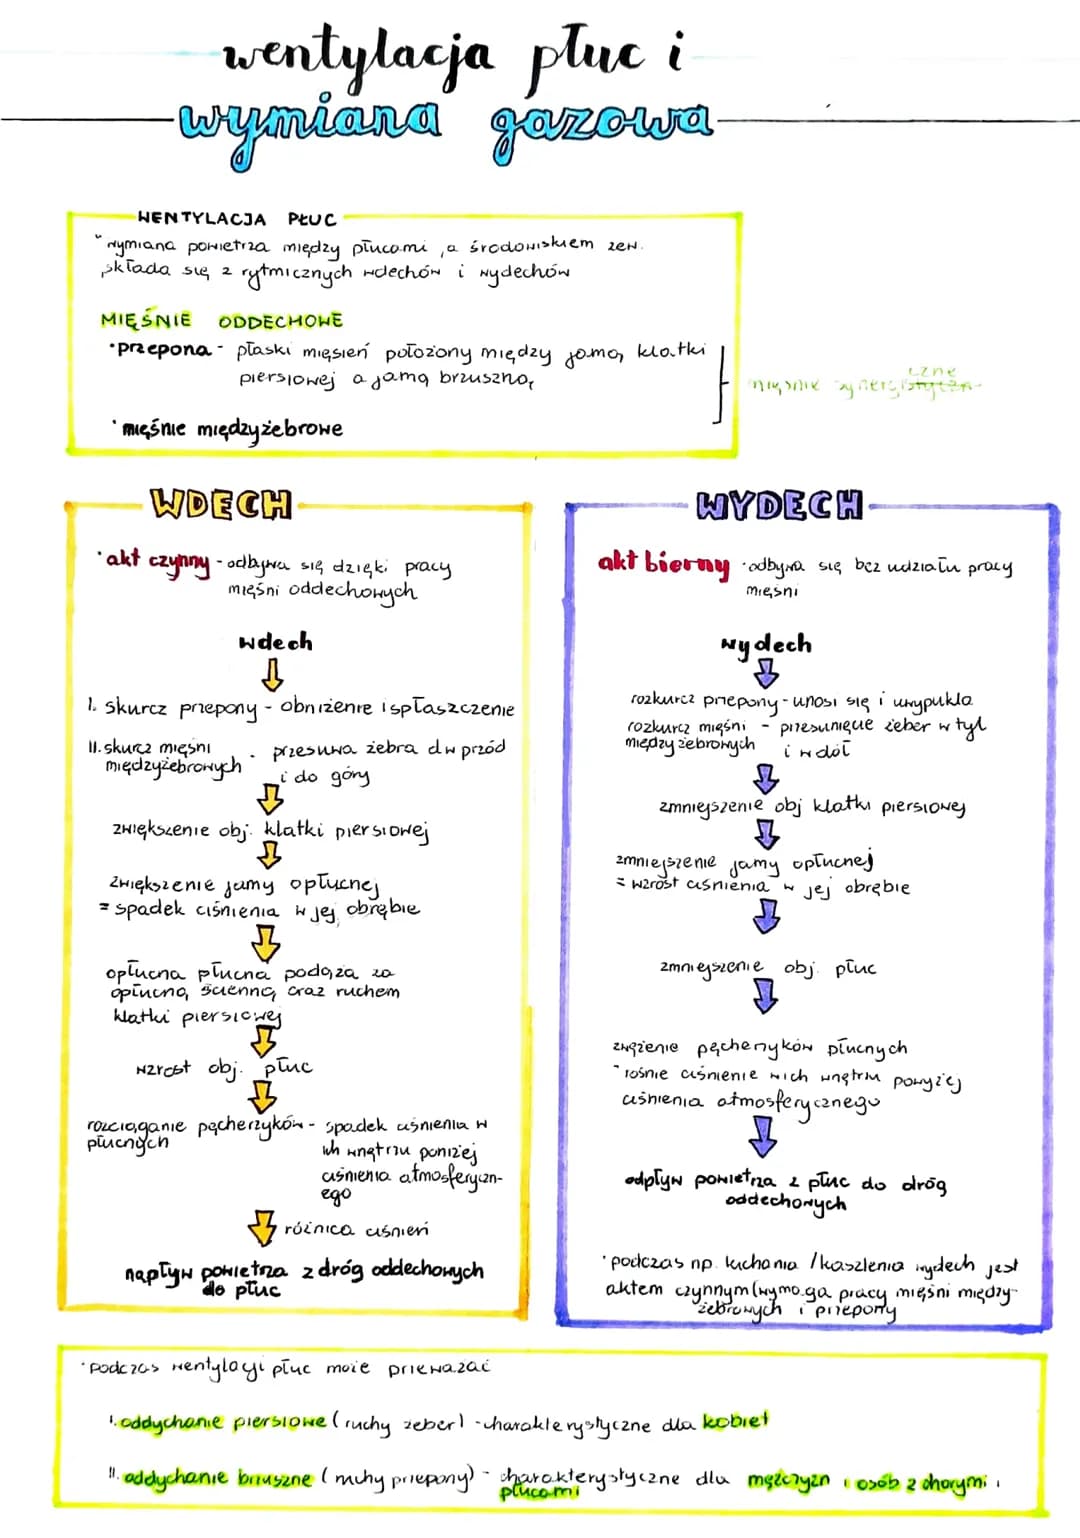 wentylacja płuc i
wymiana gazowa
WENTYLACJA PŁUC
wymiana powietrza między płucami, a środowiskiem zew.
składa się z rytmicznych wdechów i wydechów
MIĘŚNIE ODDECHOWE
• przepona - płaski mięsień położony między jamą klatki
piersiowej a jamą brzuszną
mięśnie synergistyczne
• mięśnie międzyżebrowe
WDECH
• akt czynny - odbywa się dzięki pracy
mięśni oddechowych
wdech
I. skurcz przepony - obniżenie i spłaszczenie
II. skurcz mięśni międzyżebrowych - przesuwa żebra do w przód
i do góry
zwiększenie obj. klatki piersiowej
zwiększenie jamy opłucnej
= spadek ciśnienia w jej obrębie
opłucna płucna podąża za
opłucną ścienną oraz ruchem
klatki piersiowej
wzrost obj. płuc
rozciąganie pęcherzyków płucnych - spadek ciśnienia w
ich wnętrzu poniżej
ciśnienia atmosferyczn-
ego
różnica ciśnień
napływ powietrza z dróg oddechowych
do płuc
WYDECH
akt bierny • odbywa się bez udziału pracy
mięśni
wydech
rozkurcz przepony - unosi się i uwypukla
rozkurcz mięśni międzyżebrowych - przesunięcie żeber w tył
i w dół
zmniejszenie obj klatki piersiowej
zmniejszenie jamy opłucnej
= wzrost ciśnienia w jej obrębie
zmniejszenie obj. płuc
zwężenie pęcherzyków płucnych
rośnie ciśnienie w ich wnętrzu powyżej
ciśnienia atmosferycznego
odpływ powietrza z płuc do dróg
oddechowych
• podczas np. kichania / kaszlenia wydech jest
aktem czynnym (wymaga pracy mięśni między-
żebrowych i przepony
• podczas wentylacji płuc może przeważać
I. oddychanie piersiowe (ruchy żeber) - charakterystyczne dla kobiet
II. oddychanie brzuszne (ruchy przepony) - charakterystyczne dla mężczyzn i osób z chorymi
płucami